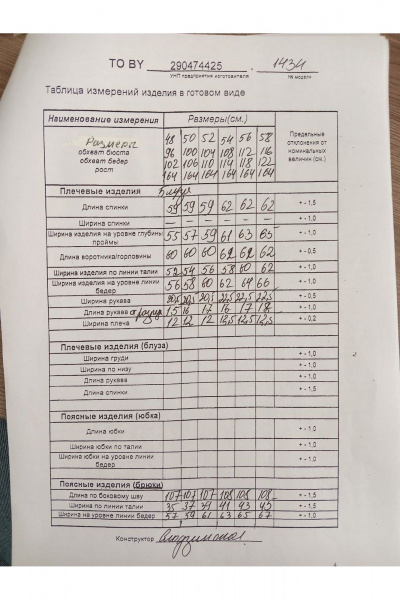 TO BY 290474425 . 1434
УНП предприятия изготовителя № модели
Таблица измерений изделия в готовом виде
Наименование измерения Размеры(см.) Предельные отклонения от номинальных величин (см.)
Размеры 48 50 52 54 56 58
обхват бюста 96 100 104 108 112 116
обхват бедер 102 106 110 114 118 122
рост 164 164 164 164 164 164
Плечевые изделия блуза
Длина спинки 59 59 59 62 62 62 + - 1,5
Ширина спинки – – – – – – + - 1,0
Ширина изделия на уровне глубины проймы 55 57 59 61 63 65 + - 1,0
Длина воротника/горловины 60 60 60 62 62 62 + - 0,5
Ширина изделия по линии талии 52 54 56 58 60 62 + - 1,0
Ширина изделия на уровне линии бедер 56 58 60 62 64 66 + - 1,0
Ширина рукава 20,5 20,5 20,5 22,5 22,5 22,5 + - 0,5
Длина рукава 15 16 17 16 17 18 + - 1,0
Ширина плеча 12 12 12 12,5 12,5 12,5 + - 0,2
Плечевые изделия (блуза)
Ширина груди + - 1,0
Ширина по низу + - 1,0
Длина рукава + - 1,0
Длина спинки + - 1,5
Поясные изделия (юбка)
Длина юбки + - 1,0
Ширина юбки по талии + - 1,0
Ширина юбки на уровне линии бедер + - 1,0
Поясные изделия (брюки)
Длина по боковому шву 107 107 107 108 108 108 + - 1,5
Ширина по линии талии 35 37 39 41 43 45 + - 1,0
Ширина на уровне линии бедер 57 59 61 63 65 67 + - 1,0
Конструктор